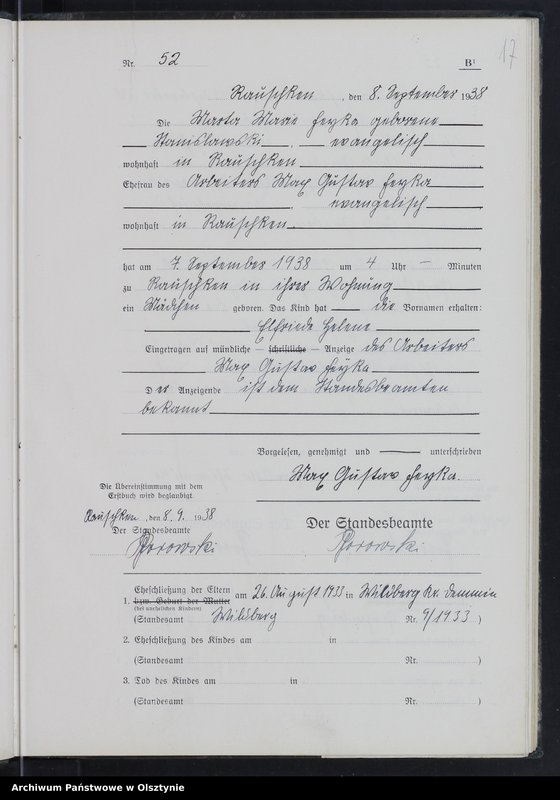 17
Nr. 52 B¹
Rauschken, den 8. September 1938
Die Marta Marie Feyka geborene
Stanislawski, evangelisch
wohnhaft in Rauschken
Ehefrau des Arbeiters Max Gustav Feyka
evangelisch
wohnhaft in Rauschken
hat am 7. September 1938 um 4 Uhr — Minuten
zu Rauschken in ihrer Wohnung
ein Mädchen geboren. Das Kind hat die Vornamen erhalten:
Elfriede Helene
Eingetragen auf mündliche — schriftliche — Anzeige des Arbeiters
Max Gustav Feyka
Der Anzeigende ist dem Standesbeamten
bekannt
Vorgelesen, genehmigt und unterschrieben
Max Gustav Feyka.
Die Übereinstimmung mit dem
Erstbuch wird beglaubigt.
Rauschken, den 8. 9. 1938
Der Standesbeamte
Der Standesbeamte
1. Eheschließung der Eltern am 26. August 1933 in Wildberg Kr. Demmin
bzw. Geburt der Mutter
(bei unehelichen Kindern)
(Standesamt Wildberg Nr. 9/1933)
2. Eheschließung des Kindes am in
(Standesamt Nr. )
3. Tod des Kindes am in
(Standesamt Nr. )
Archiwum Państwowe w Olsztynie